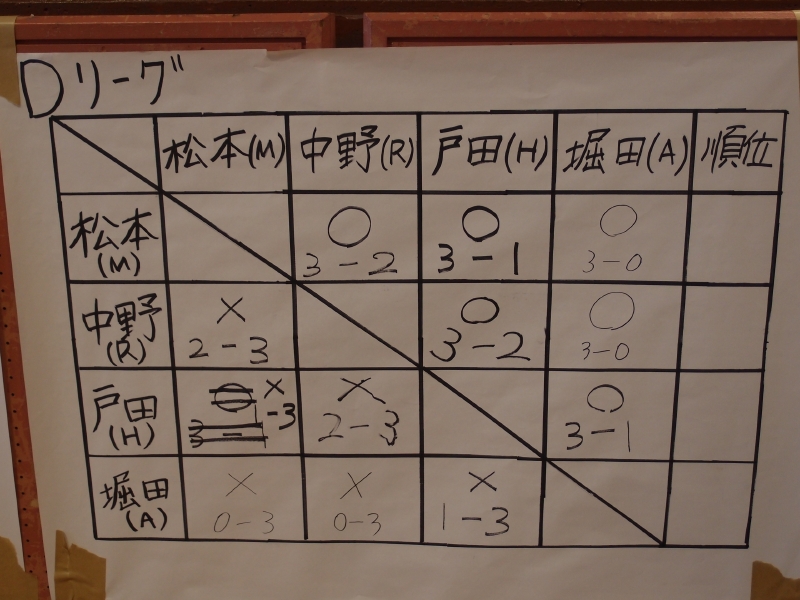 Dリーグ
松本(M) 中野(R) 戸田(H) 堀田(A) 順位
松本(M) ○ 3-2 ○ 3-1 ○ 3-0
中野(R) × 2-3 ○ 3-2 ○ 3-0
戸田(H) ○ 3-1 × 1-3 × 2-3 ○ 3-1
堀田(A) × 0-3 × 0-3 × 1-3